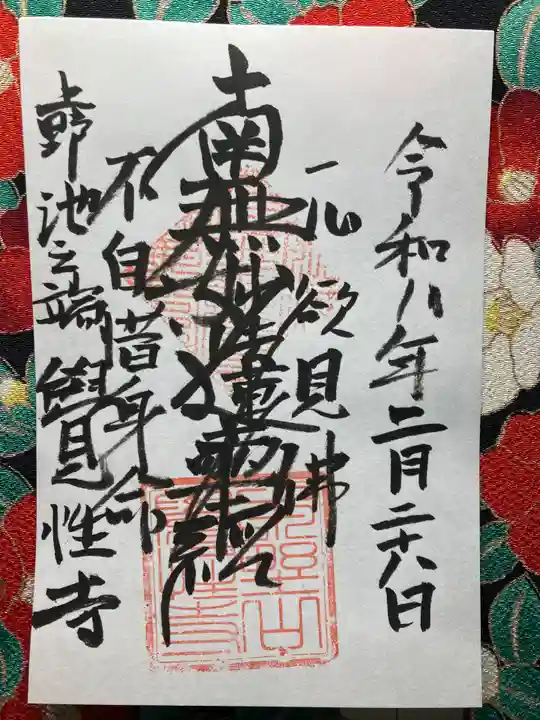 令和八年二月二十八日
一心欲見佛
南無妙法蓮華経
不自惜身命
上野池之端 覺性寺